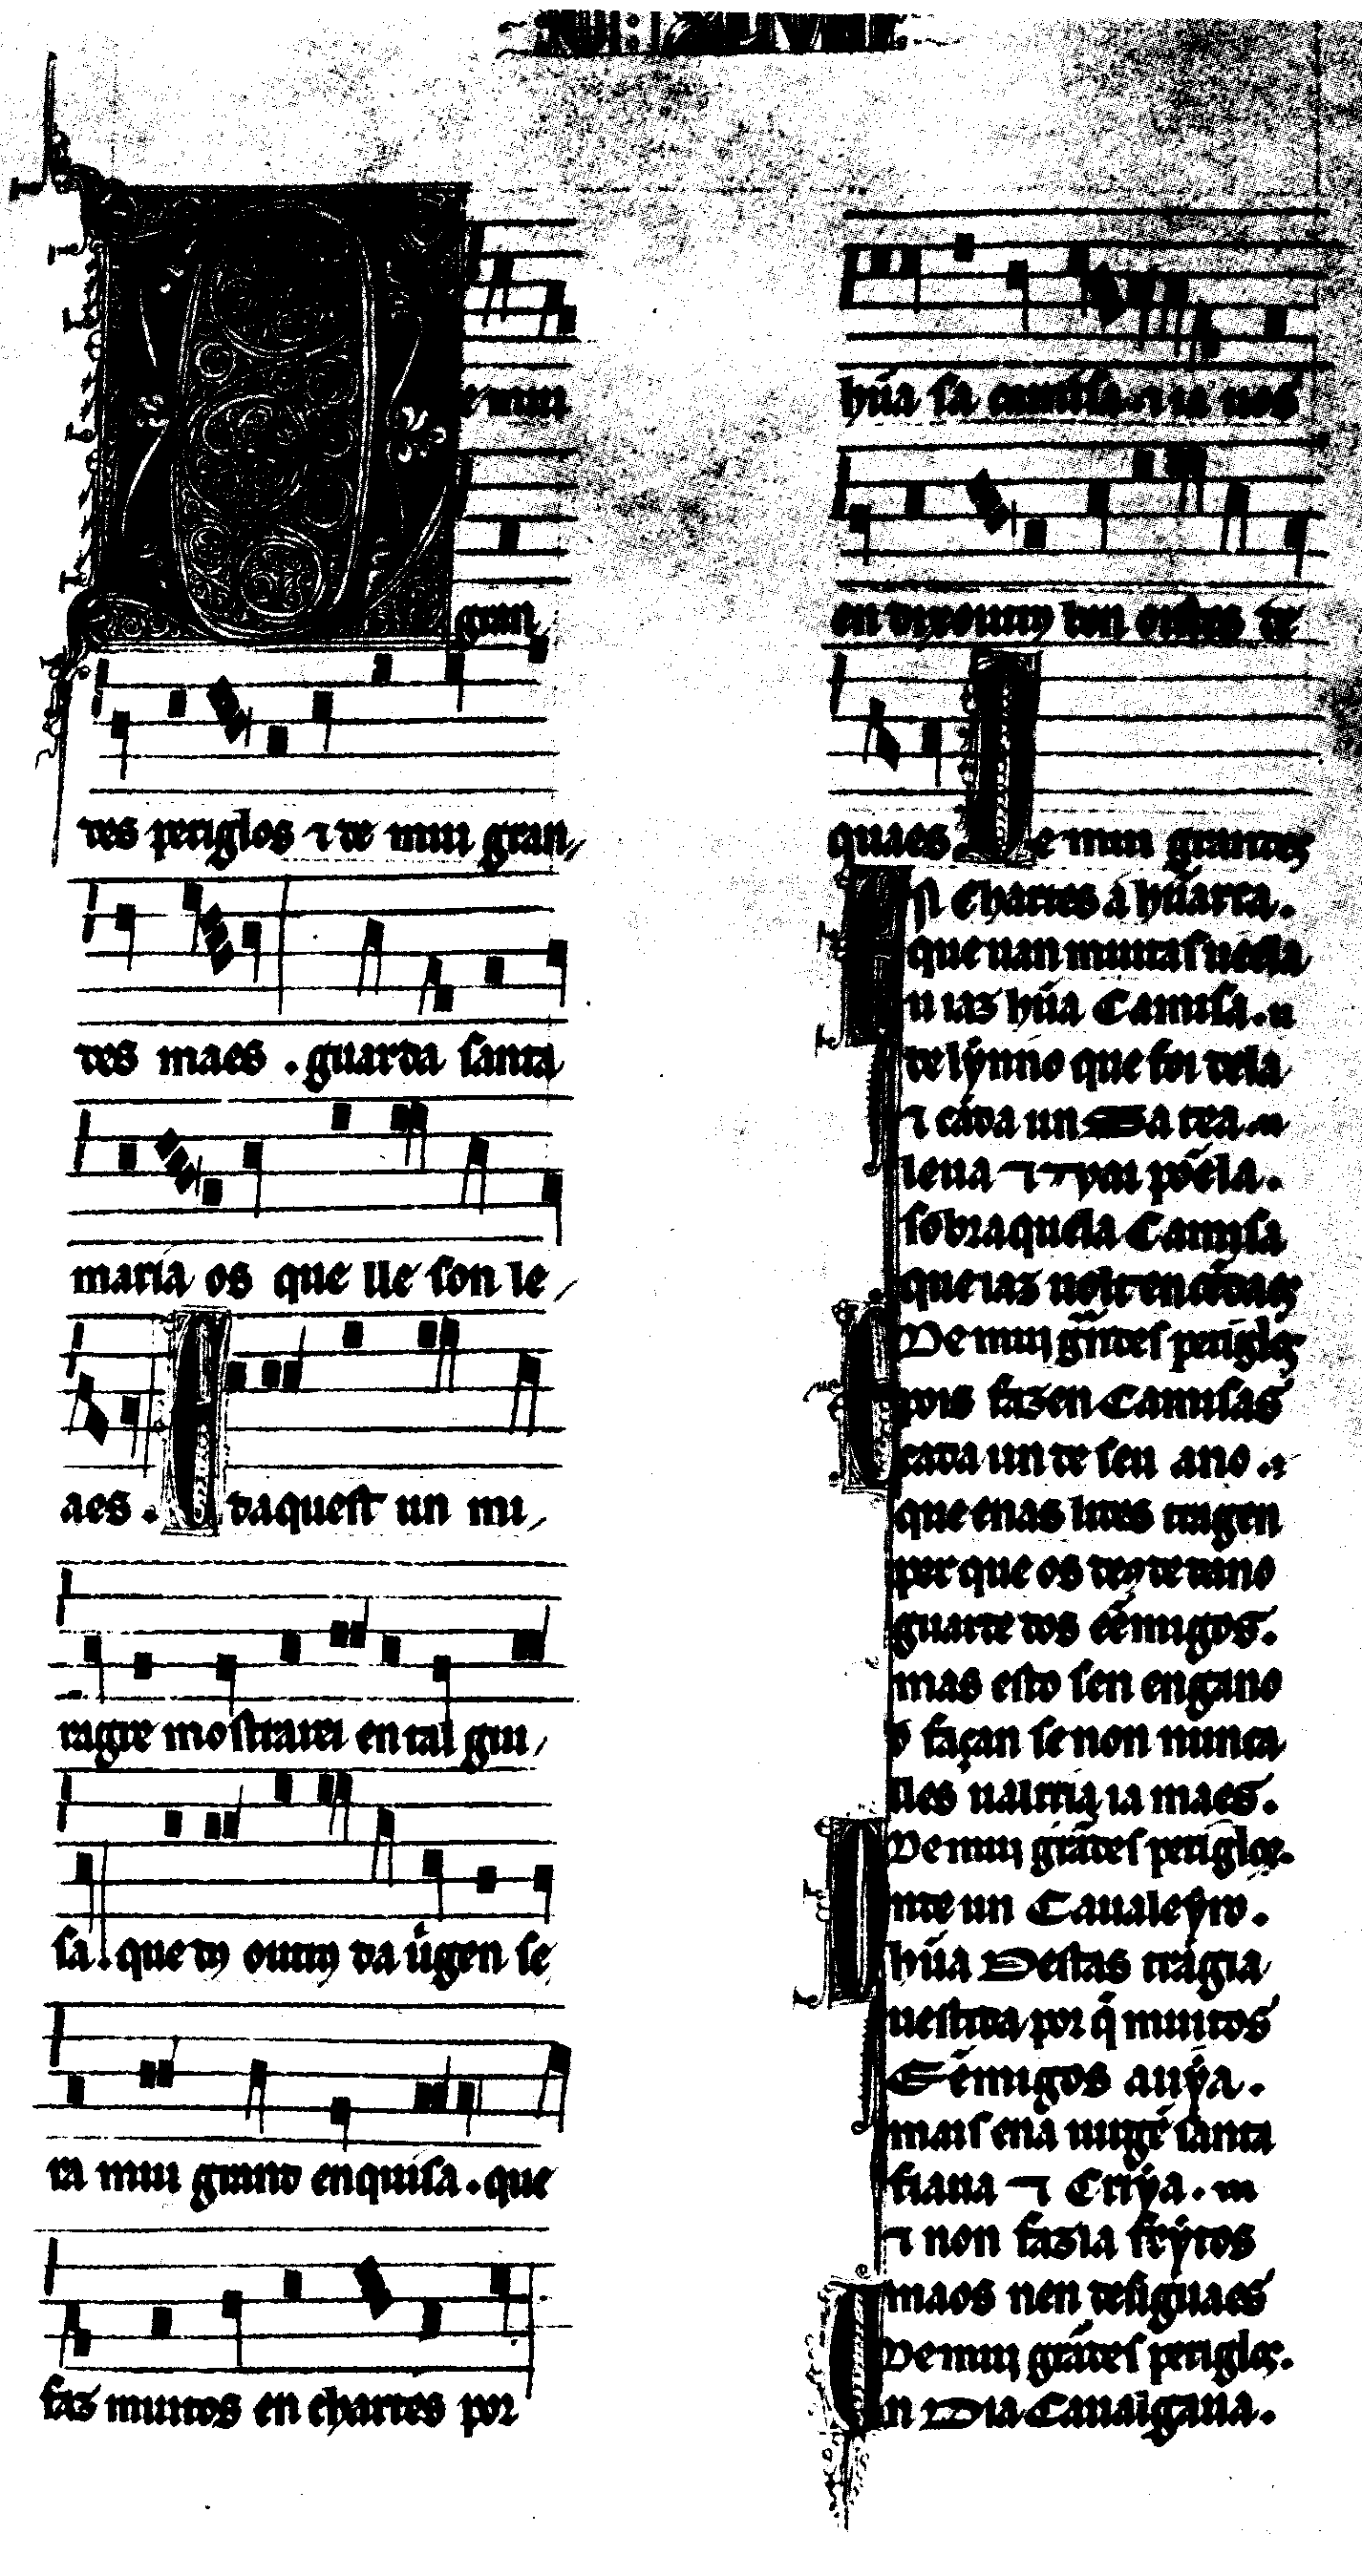 De mui
gran
des periglos ⁊ de mui gran
des maes . guarda santa
maria os que lle son le
aes . E daquest un mi
ragre mostrarei en tal gui
sa . que dý outrý da uírgen se
ra mui grand enquisa . que
faz muitos en chartes por
hũa sa camisa . ⁊ ia uos
en dixoutrý don ontes de
quaes De mui grandes
En Chartes á hũ arca .
que uan muitas ueela
u iaz hũa Camisa .
de lýnno que foi dela
⁊ cáda un Sa dea .
leua ⁊ ypoi põela .
sobraquela Camisa
que iaz noit en
De mui grãdes periglos
pois fazen Camisas
cada un de seu ano .
que enas lides tragen
per que os deý de dano
guarde dos eẽmigos .
mas esto sen engano
o façan se non nunca
lles ualrriá ia maes .
De mui grãdes periglos .
Onde un Caualeýro .
hũa Destas trágia
uestida por q̃ muitos
Eẽmigos auýa .
mais ena uirgẽ santa
fiaua ⁊ Criýa .
⁊ non fazia frýtos
maos nen desiguaes
De mui grãdes periglos .
Un Dia Caualgaua .